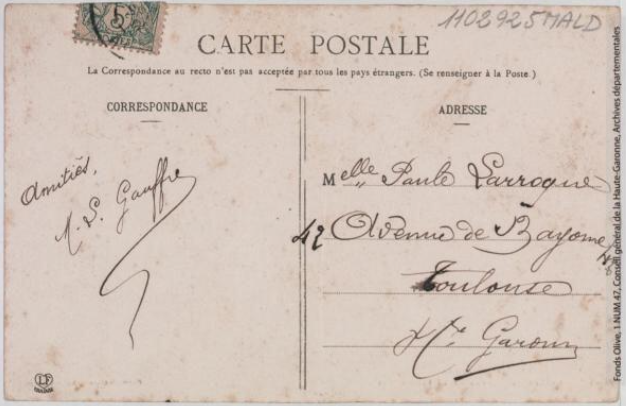 1102925MALD
CARTE POSTALE
La Correspondance au recto n'est pas acceptée par tous les pays étrangers. (Se renseigner à la Poste)
CORRESPONDANCE
Amitiés,
M. L. Gauffre
ADRESSE
Melle Paule Larroque
42 Avenue de Bayonne
Toulouse
Hte Garonne
Fonds Olive, 1 NUM 47, Conseil général de la Haute-Garonne, Archives départementales